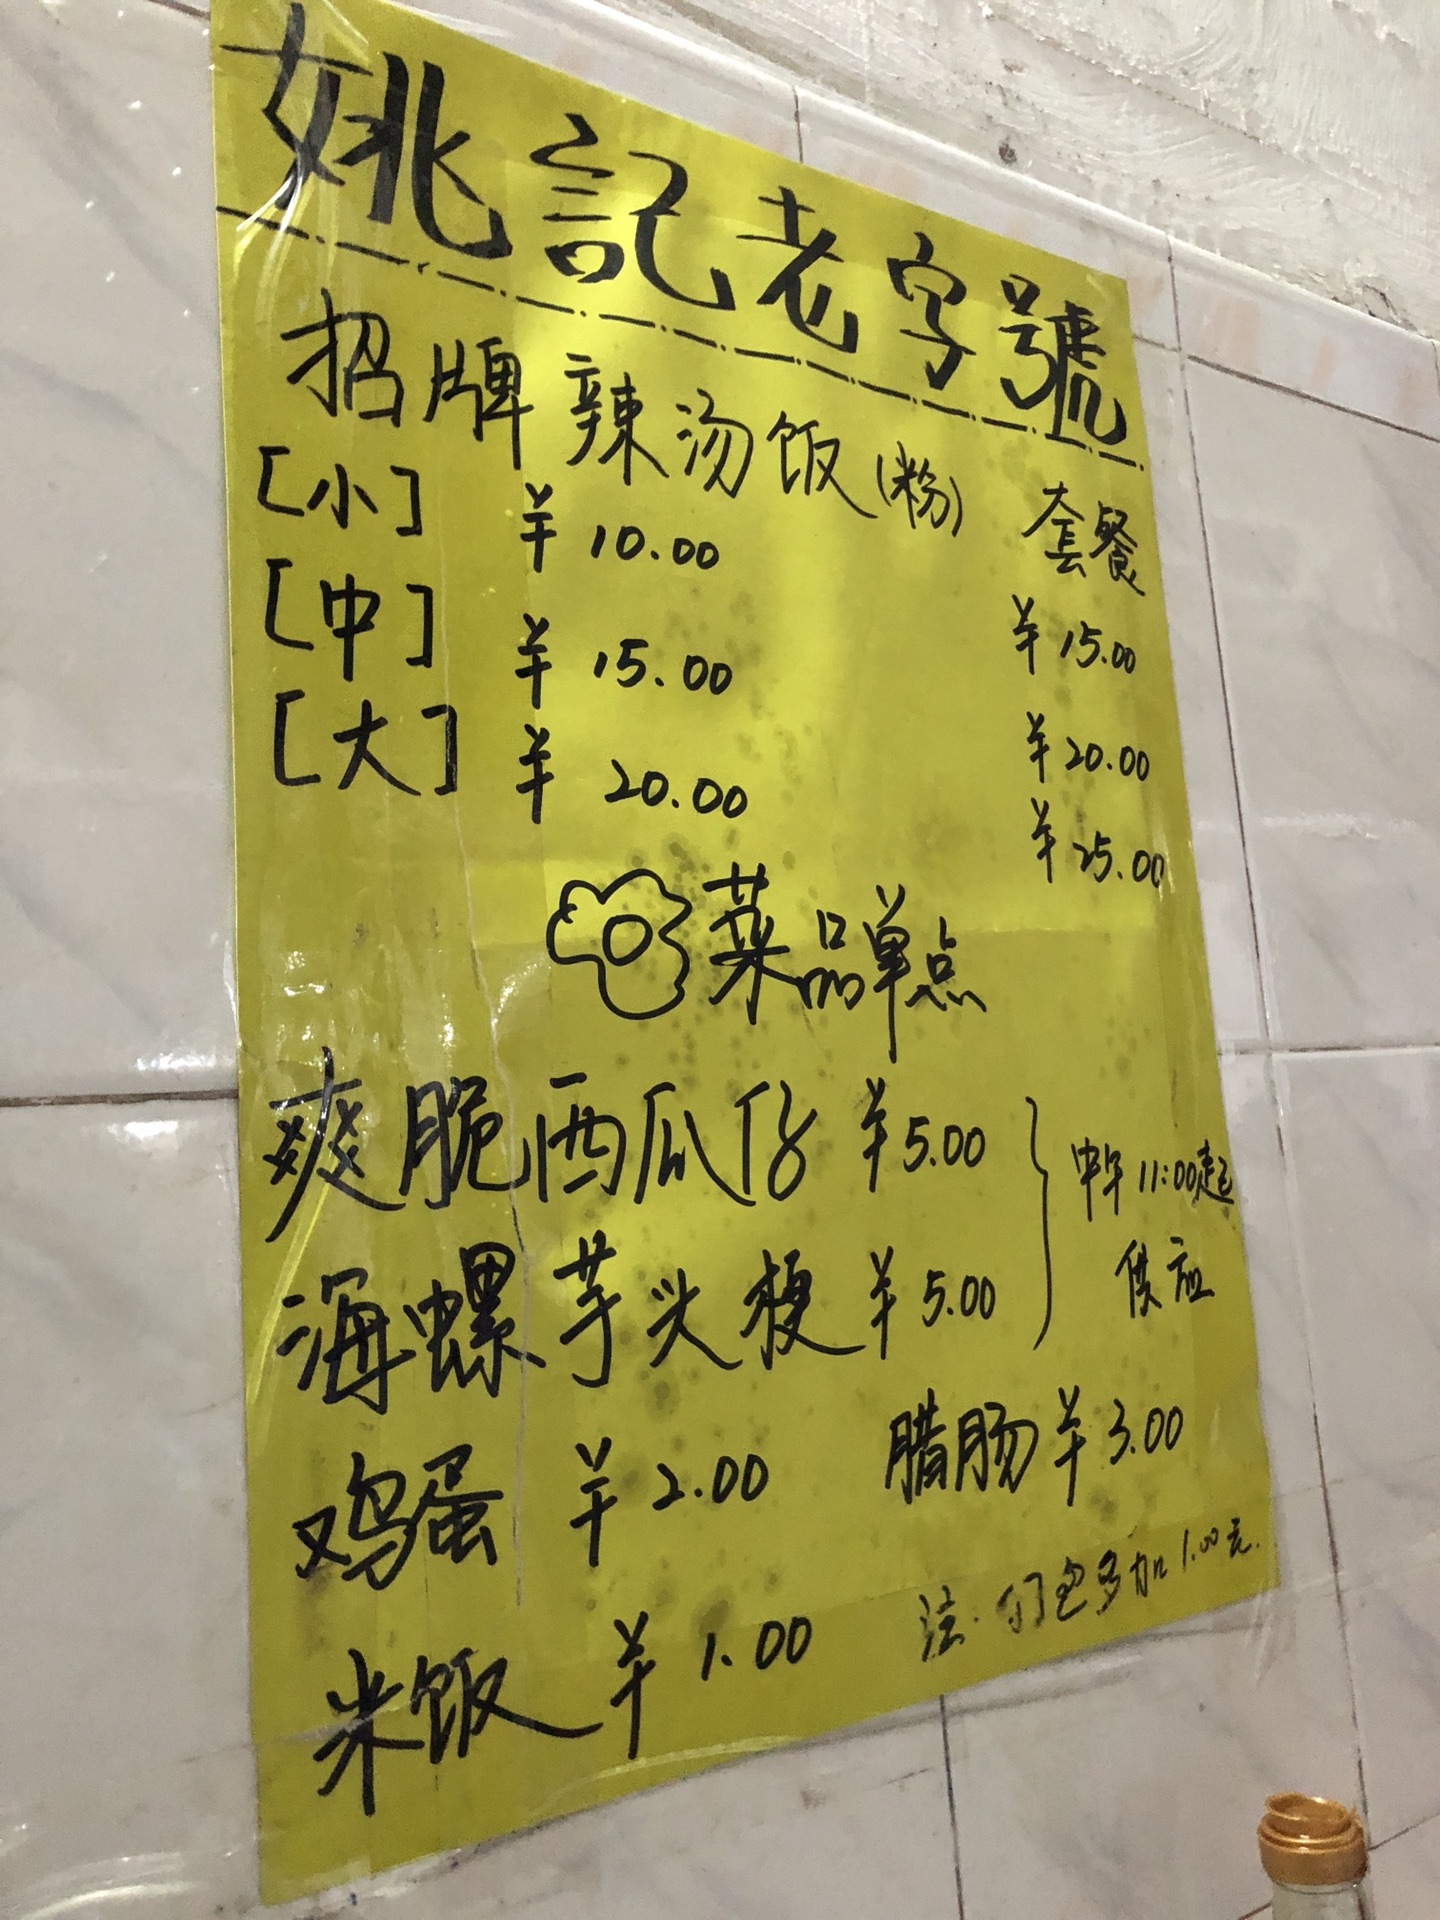 姚記老字號
招牌辣汤饭(粉) 套餐
[小] ¥10.00 ¥15.00
[中] ¥15.00 ¥20.00
[大] ¥20.00 ¥25.00
菜品单点
爽脆西瓜仔 ¥5.00
海螺芋头梗 ¥5.00
中午11:00起
供应
鸡蛋 ¥2.00 腊肠 ¥3.00
米饭 ¥1.00 注:打包多加1.00元.